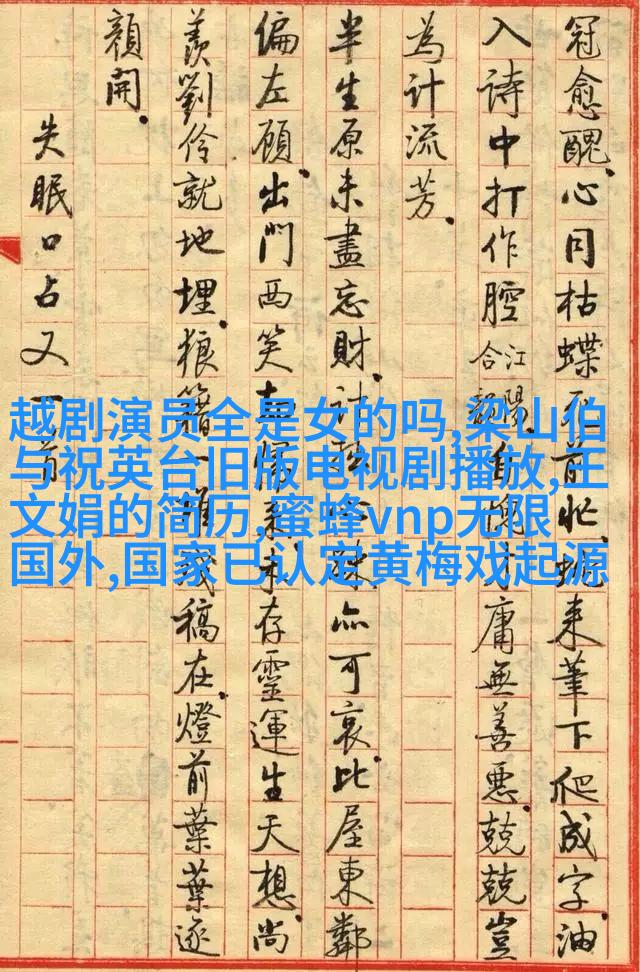 冠愈醜。心同枯蝶前忙。来筆下爬成字。油
入詩中打作腔江陽合韻。自庸無善惡。兢兢豈
為計流芳。
半生原未盡忘財。計亦可哀。比屋東鄰
偏左顧。出門西笑存靈運生天想。尚
羨劉伶就地埋。狼籍一稿在。燈前葉葉逐
顏開。
失眠口占又一首
越剧演员全是女的吗,梁山伯
与祝英台旧版电视剧播放,王
文娟的简历,蜜蜂vnp无限
国外,国家已认定黄梅戏起源